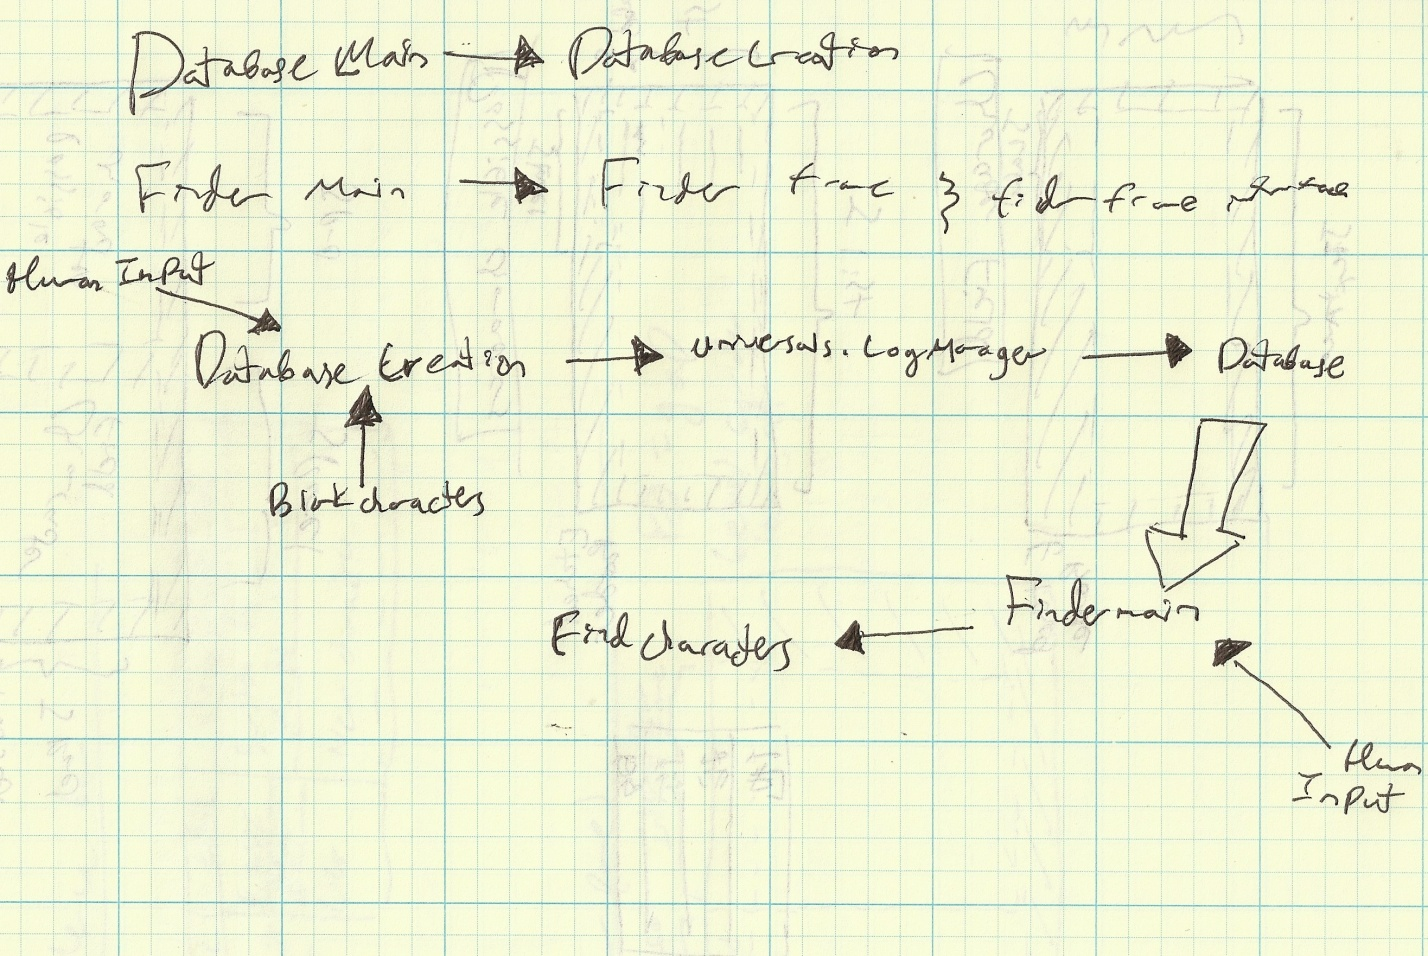 Database Main Database Creation
Finder Main Finder frame } finder frame interface
Human Input
Database Creation universals.LogManager Database
Blink characters
Finder main
Find characters
Human
Input